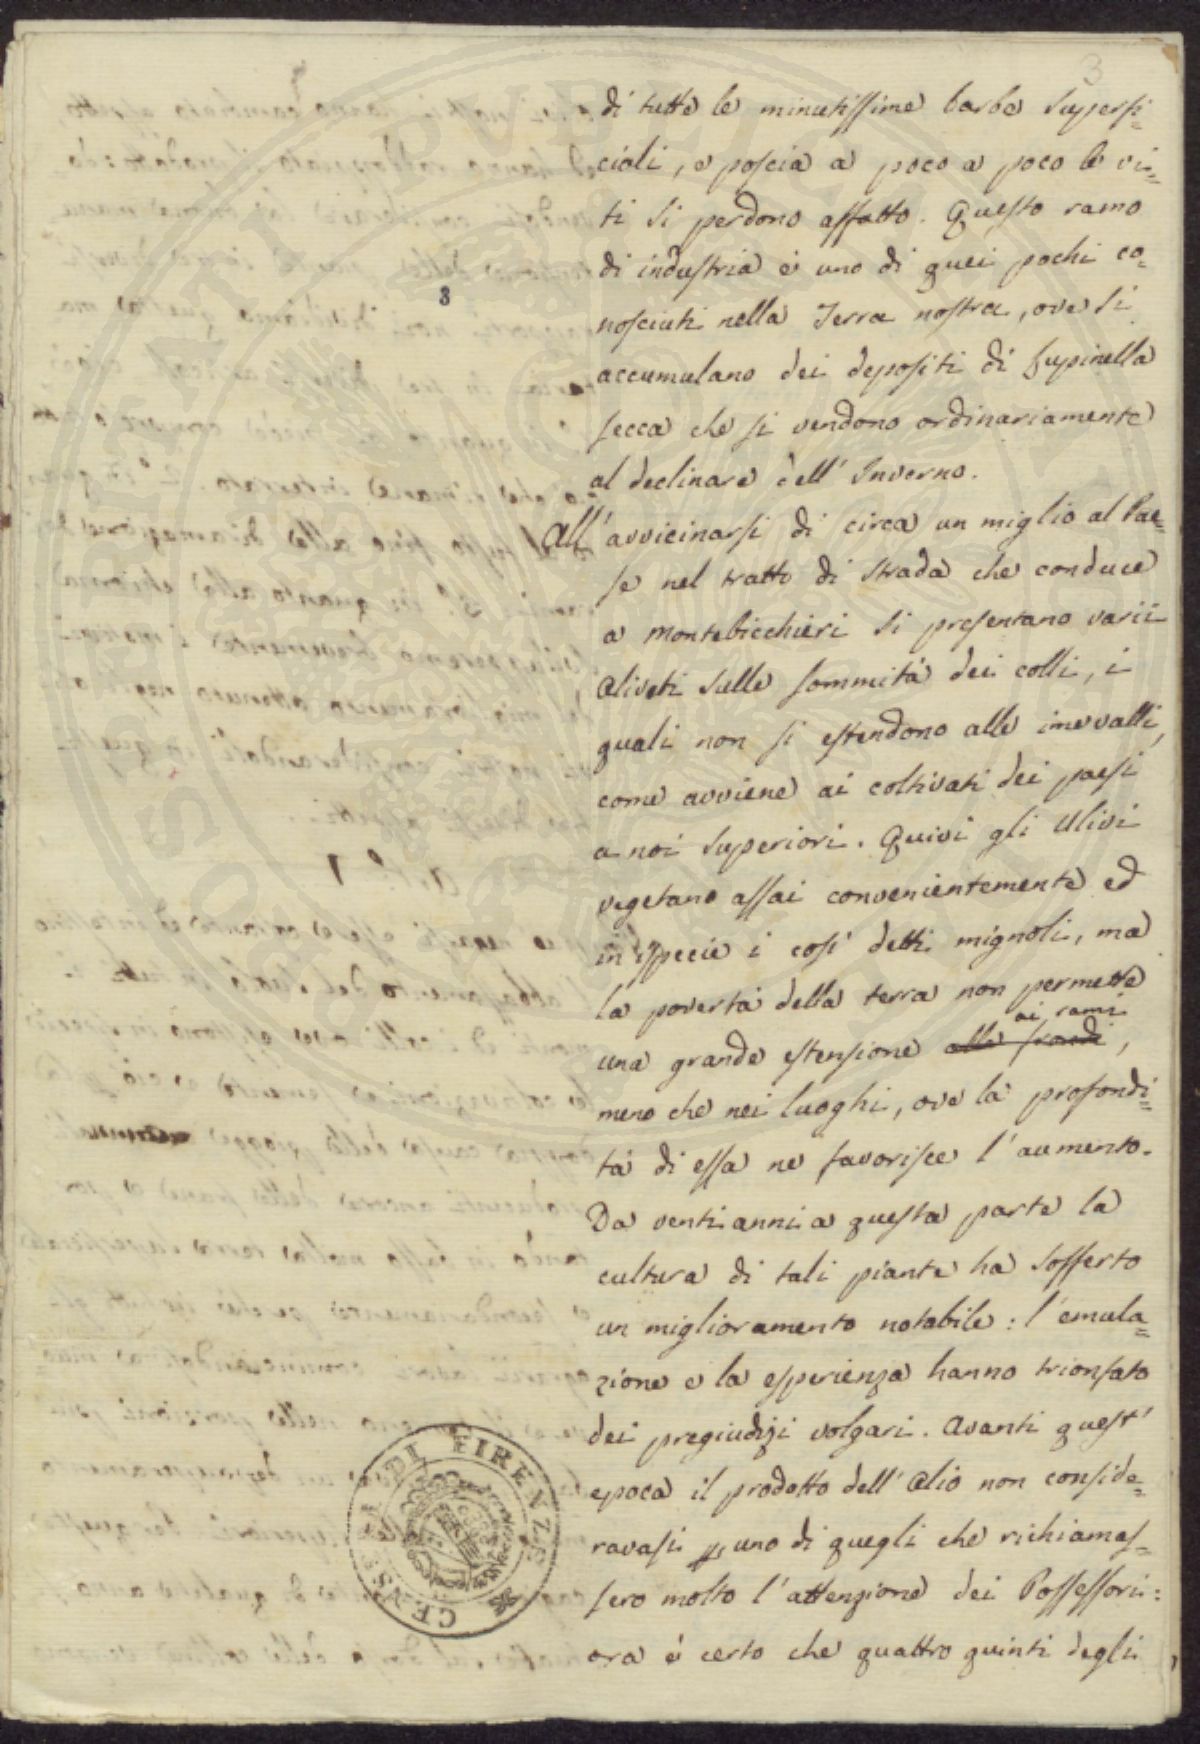 3
di tutte le minutissime barbe superfi=
ciali, e poscia a poco a poco le vi=
ti si perdono affatto. Questo ramo
di industria è uno di quei pochi co=
nosciuti nella Terra nostra, ove si
accumulano dei depositi di Lupinella
secca che si vendono ordinariamente
al declinare dell' Inverno.
All' avvicinarsi di circa un miglio al Pae=
se nel tratto di strada che conduce
a Montebicchieri si presentano varii
Oliveti sulle sommità dei colli, i
quali non si estendono alle ime valli,
come avviene ai coltivati dei paesi
a noi superiori. Quivi gli Ulivi
vegetano assai convenientemente ed
in ispecie i così detti mignoli, ma
la povertà della terra non permette
una grande estensione alle frondi ai rami,
meno che nei luoghi, ove la profondi=
tà di essa ne favorisce l' aumento.
Da venti anni a questa parte la
cultura di tali piante ha sofferto
un miglioramento notabile: l' emula=
zione e la esperienza hanno trionfato
dei pregiudizi volgari. Avanti quest'
epoca il prodotto dell' Olio non conside=
ravasi p uno di quegli che richiamas=
sero molto l' attenzione dei Possessori:
ora è certo che quattro quinti degli
8
CENS DI FIRENZE